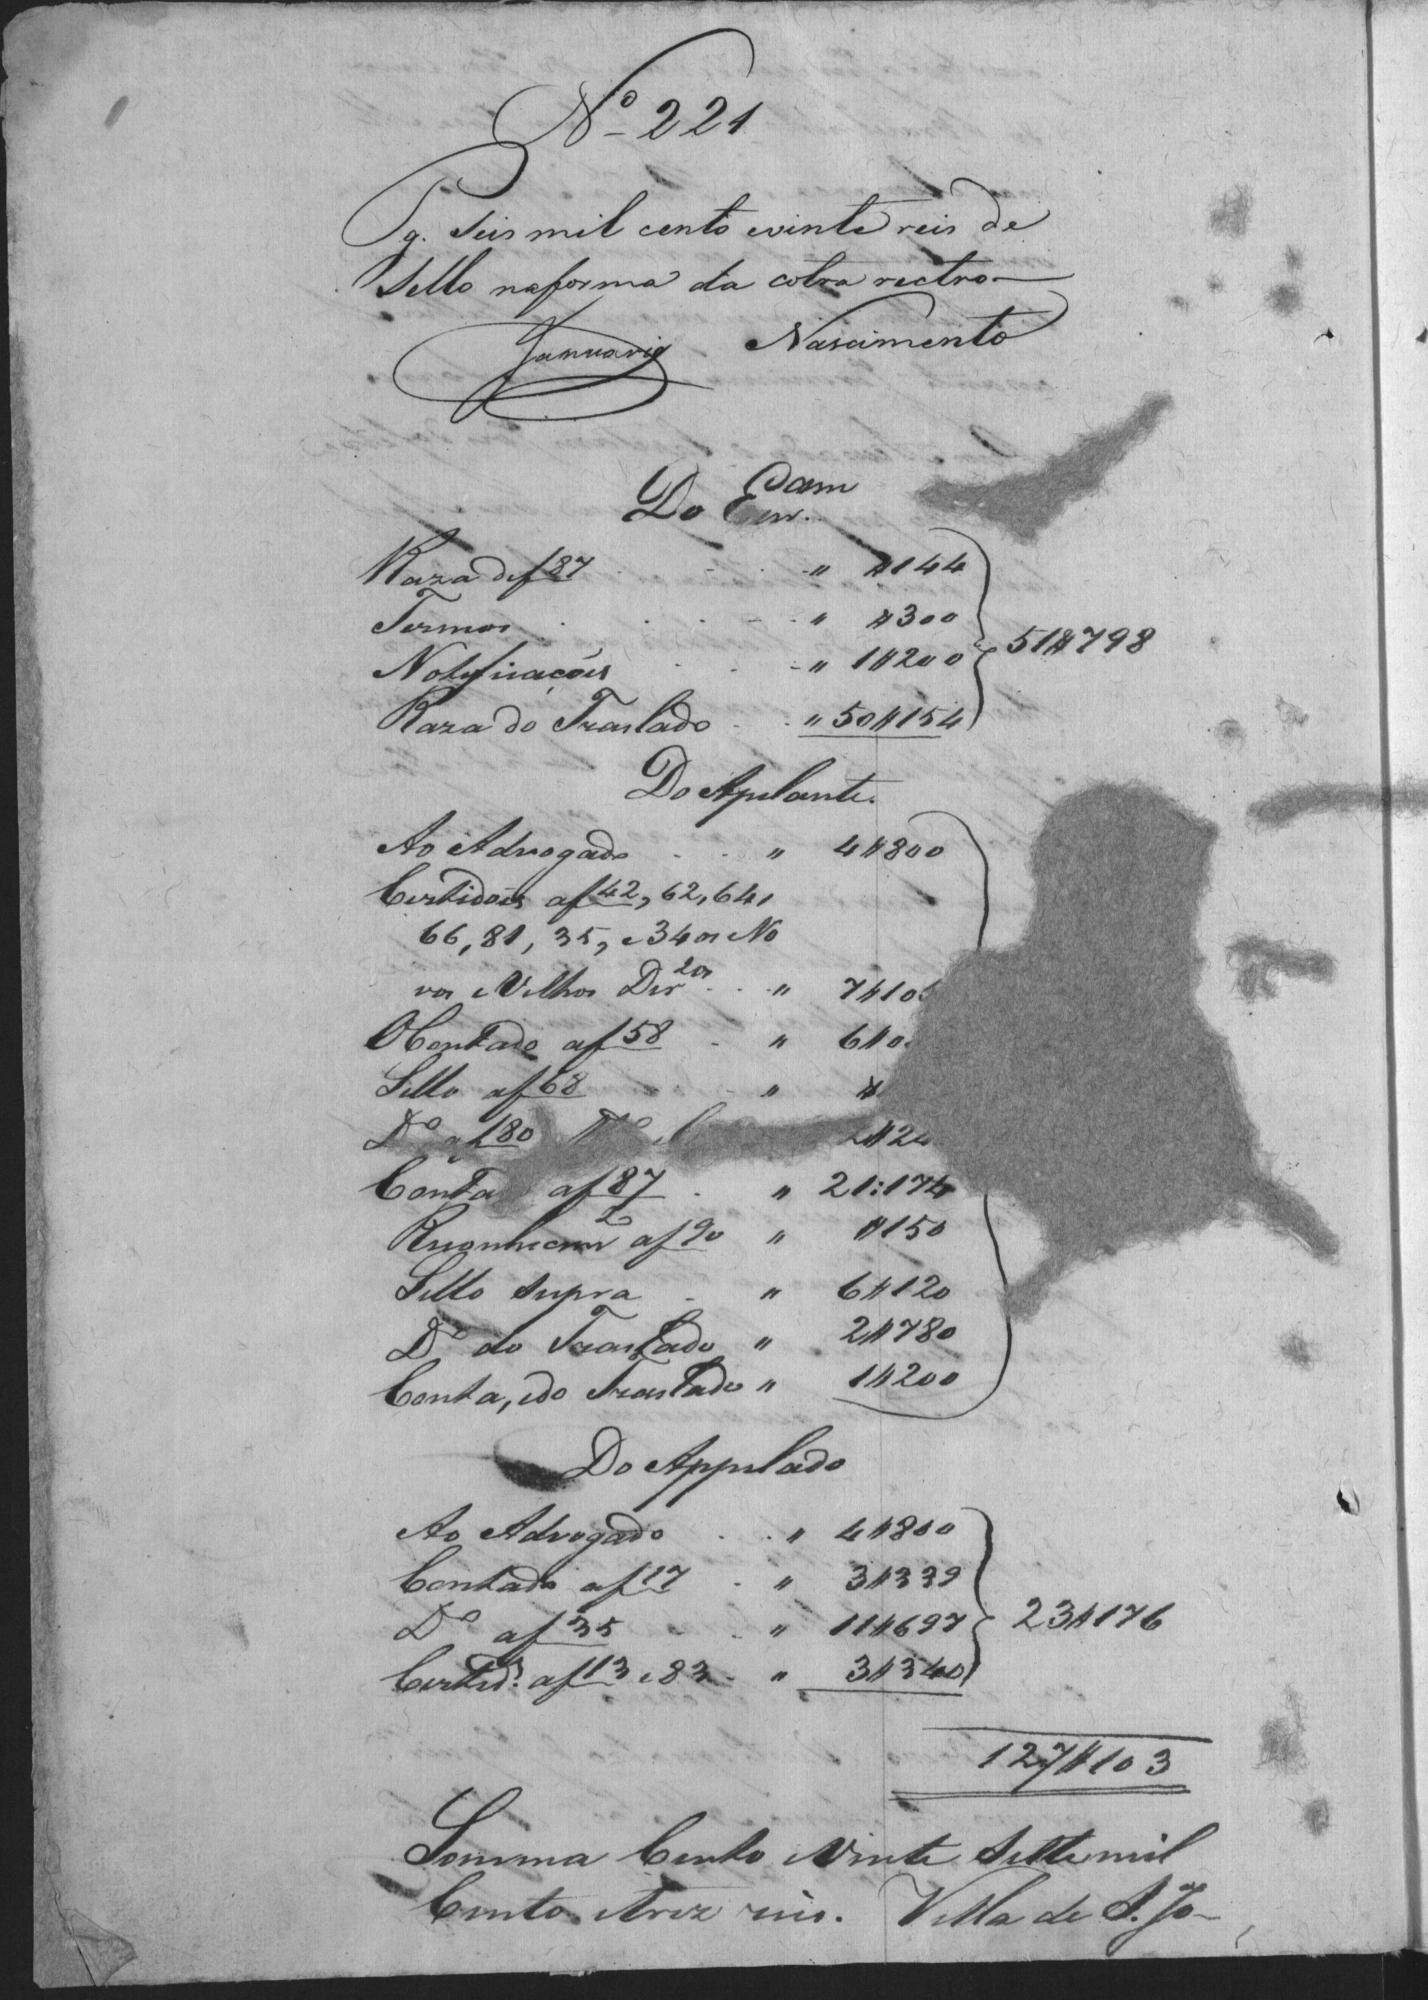 Nº 221
Pg. seis mil cento evinte reis de
Sello naforma da cobra rectro
Januario Nascimento
Do Escr.am
Raza def 87 " $144
Termos " $300
Notificações " 1$200
Raza do Traslado " 50$154
51$798
Do Apelante.
Ao Advogado " 4$800
Certidões af 42, 62, 64,
66, 81, 35, e 34 os No
vos e Velhos Dir.tos " 7$10
O Contado af 58 " 6$0
Sello af 68 " $
Dº af 80 2$24
Conta af 87 " 21:174
Reconhecim.to af 90 " $150
Sello supra " 6$120
Dº do Traslado " 2$780
Conta, edo Traslado " 1$200
Do Appelado
Ao Advogado " 4$800
Contado af 17 " 3$339
Dº af 35 " 11$697
Certid.s af 13 e 83 " 3$340
23$176
127$103
Somma Cento eVinte Settemil
Cento etrez reis. Villa de S. Jo-